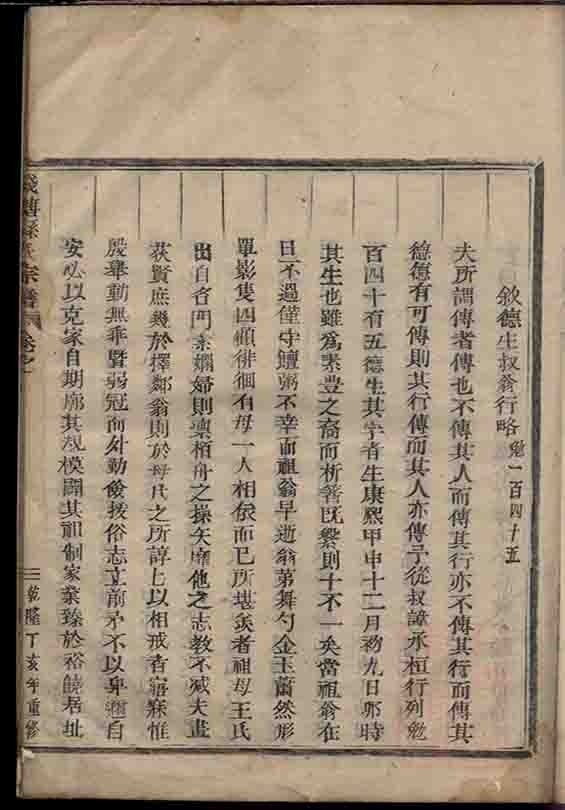 敘德生叔翁行略 勉一百四十五
夫所謂傳者傳也不傳其人而傳其行亦不傳其行而傳其
德德有可傳則其行傳而其人亦傳予從叔諱承桓行列勉
百四十有五德生其字者生康熙甲申十二月初九日卯時
其生也雖為素豐之裔而析箸既繁則十不一矣當祖翁在
日不過僅守饘粥不幸而祖翁早逝翁弟舞勺金玉蕭然形
單影隻四顧徘徊有母一人相依而已所堪矣者祖母王氏
出自名門素嫻婦則凛栢舟之操矢靡他之志教不减夫畫
荻賢庶幾於擇鄰翁則於母氏之所諄上以相戒者寤寐惟
殷舉動無乖暨弱冠而外勤儉拔俗志立前矛不以卑 自
安必以克家自期廓其規模闢其祖制家業臻於裕饒居址
宗譜 卷之
乾隆丁亥年重修